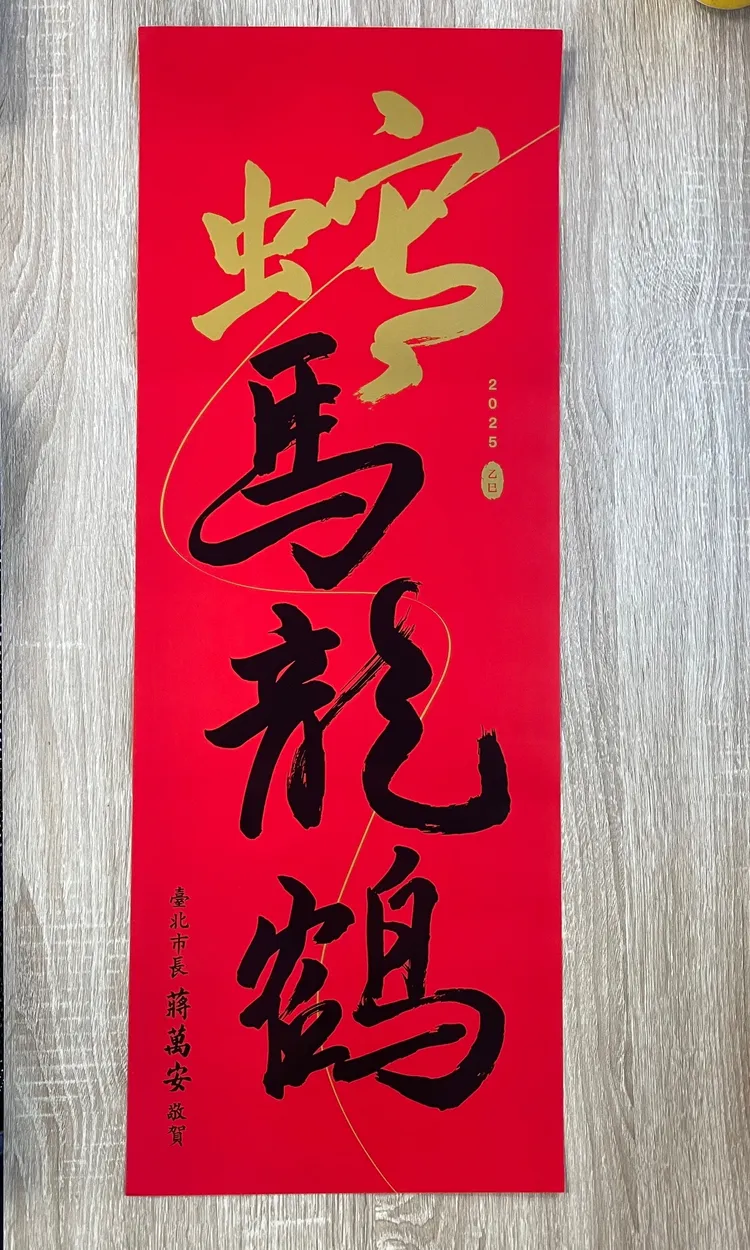 蛇馬龍鶴
2025
乙巳
臺北市長 蔣萬安 敬賀